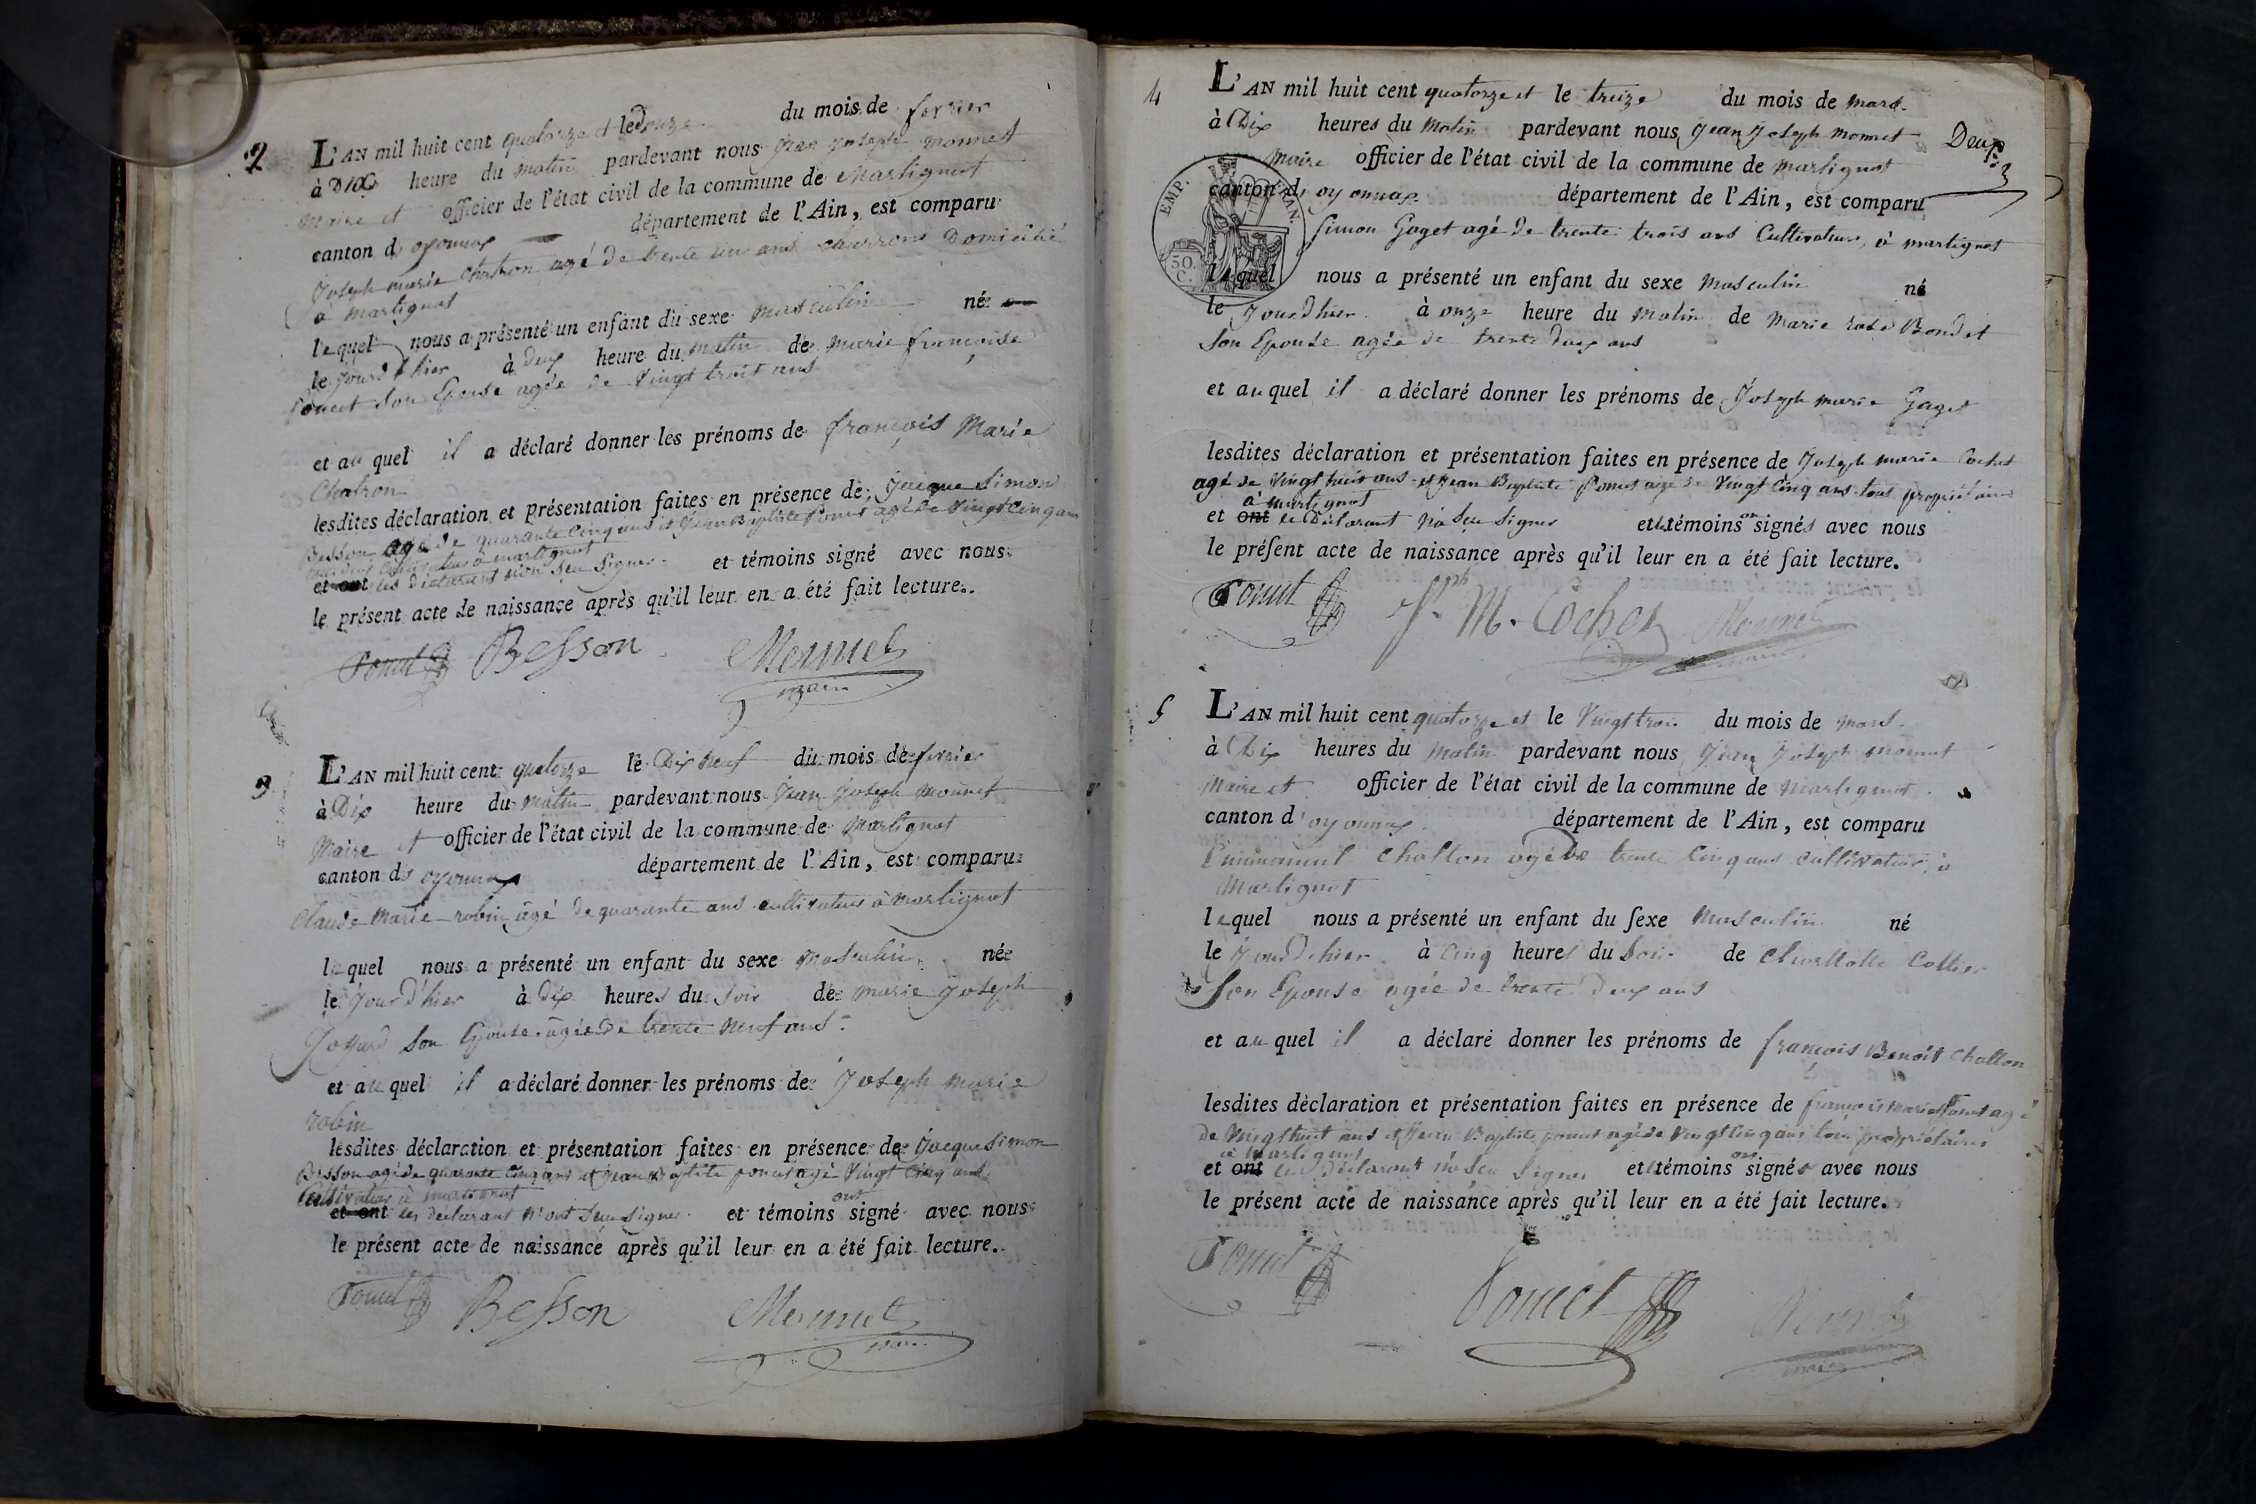 2
L'AN mil huit cent quatorze et le douze du mois de fevrier
à Dix heure du matin pardevant nous Jean Joseph Monnet
Maire et officier de l'état civil de la commune de Martignat
canton d oyonnax département de l'Ain, est comparu
Joseph marie Chatron agé de trente un ans charron Domicilié
a martignat
lequel nous a présenté un enfant du sexe masculin né
le jourd'hier à deux heure du matin de marie françoise
Poncet son Epouse agée de Vingt trois ans
et au quel il a déclaré donner les prénoms de françois Marie
Chatron
lesdites déclaration et présentation faites en présence de Jacque Simon
Besson agé de quarante cinq ans et Jean Baptiste Poncet agé de Vingt cinq ans
cultivateurs à martignat
et ont les déclarant non seu signer et témoins signé avec nous
le présent acte de naissance après qu'il leur en a été fait lecture.
Poncet Besson Monnet
maire
3
L'AN mil huit cent quatorze le Dix neuf du mois de fevrier
à Dix heure du matin pardevant nous Jean Joseph Monnet
Maire et officier de l'état civil de la commune de Martignat
canton d oyonnax département de l'Ain, est comparu
Claude Marie robin âgé de quarante ans cultivateur à martignat
lequel nous a présenté un enfant du sexe masculin né
le jourd'hier à dix heures du soir de marie Joseph
son Epouse agée de trente neuf ans
et au quel il a déclaré donner les prénoms de Joseph marie
robin
lesdites déclaration et présentation faites en présence de Jacque Simon
Besson agé de quarante cinq ans et Jean Baptiste poncet agé Vingt cinq ans
Cultivateur à martignat
et ont les déclarant n'ont seu signer et témoins ont signé avec nous
le présent acte de naissance après qu'il leur en a été fait lecture.
Poncet Besson Monnet
maire
4
L'AN mil huit cent quatorze et le treize du mois de mars
à Dix heures du Matin pardevant nous Jean Joseph Monnet
Deux
maire officier de l'état civil de la commune de martignat
EMP. FRAN.
50. C.
canton d oyonnax département de l'Ain, est comparu
Simon Gaget agé de trente trois ans Cultivateur, à martignat
lequel nous a présenté un enfant du sexe masculin né
le jourd'hier à onze heure du matin de Marie rose Bondet
son Epouse agée de trente deux ans
et au quel il a déclaré donner les prénoms de Joseph marie Gaget
lesdites déclaration et présentation faites en présence de Joseph marie Cochet
agé de Vingt huit ans et Jean Baptiste Poncet agé de Vingt cinq ans tous propriétaires
à martignat
et ont le déclarant n'a seu signer et les témoins on signés avec nous
le présent acte de naissance après qu'il leur en a été fait lecture.
Poncet Jph M. Cochet Monnet
5
L'AN mil huit cent quatorze et le Vingt trois du mois de mars
à Dix heures du Matin pardevant nous Jean Joseph monnet
Maire et officier de l'état civil de la commune de Martignat
canton d'oyonnax département de l'Ain, est comparu
Emmanuel Chatton agé de trente Cinq ans cultivateur, à
Martignat
lequel nous a présenté un enfant du sexe Masculin né
le jourd'hier à Cinq heures du soir de Charllotte Collier
son Epouse agée de trente deux ans
et au quel il a déclaré donner les prénoms de françois Benoît Chatton
lesdites déclaration et présentation faites en présence de françois marie Poncet agé
de Vingt huit ans et Jean Baptiste poncet agé de Vingt Cinq ans tous propriétaires
à Martignat
et ont le déclarant n'a seu signer et les témoins on signés avec nous
le présent acte de naissance après qu'il leur en a été fait lecture.
Poncet Poncet Monnet
maire